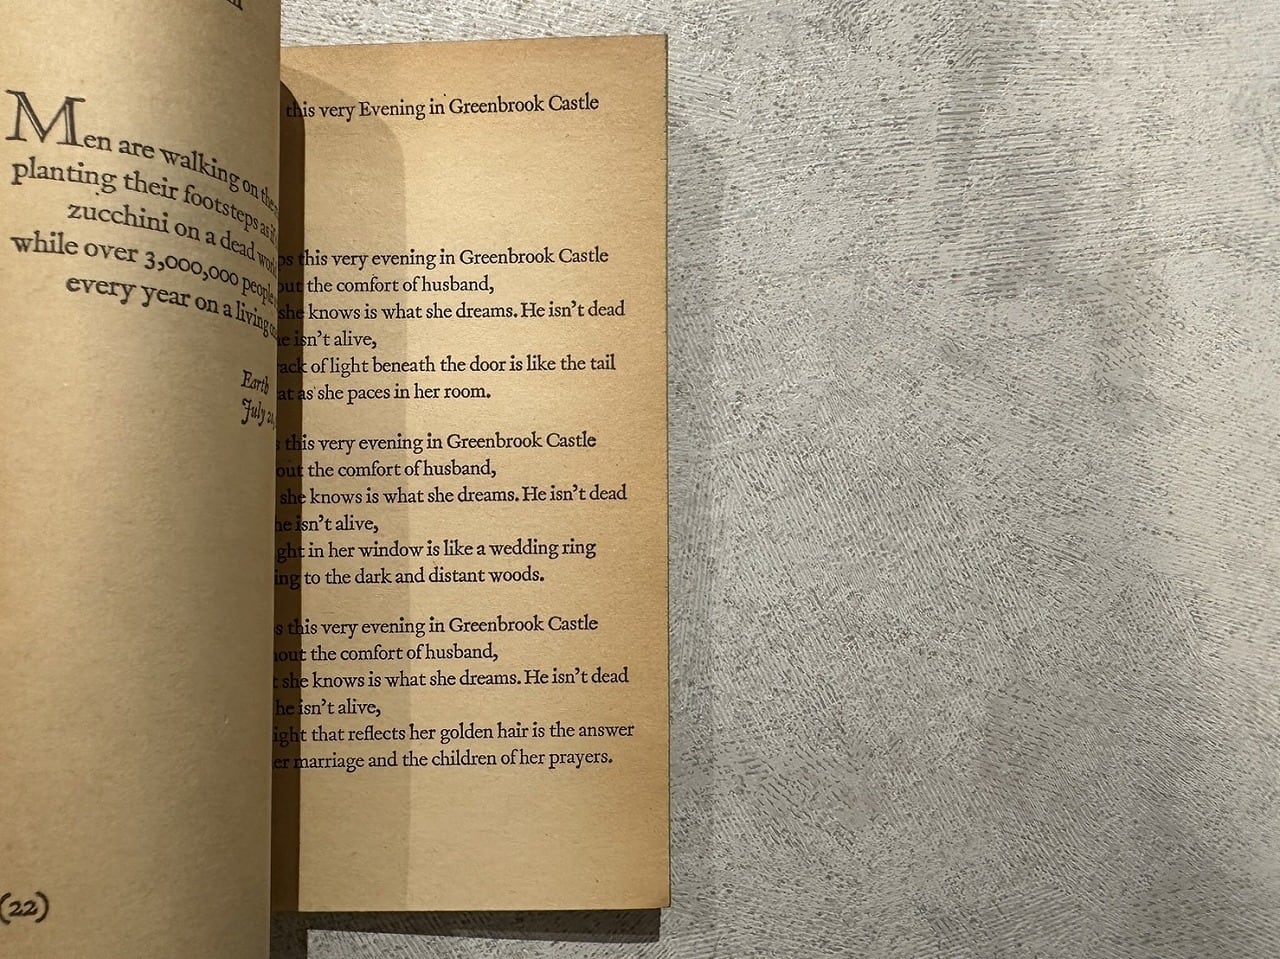 Men are walking on the
planting their footsteps as if
zucchini on a dead world
while over 3,000,000 people
every year on a living
Earth
July 20,
(22)
this very Evening in Greenbrook Castle
this very evening in Greenbrook Castle
the comfort of husband,
she knows is what she dreams. He isn't dead
isn't alive,
of light beneath the door is like the tail
as she paces in her room.
this very evening in Greenbrook Castle
out the comfort of husband,
she knows is what she dreams. He isn't dead
he isn't alive,
in her window is like a wedding ring
to the dark and distant woods.
this very evening in Greenbrook Castle
the comfort of husband,
she knows is what she dreams. He isn't dead
he isn't alive,
that reflects her golden hair is the answer
marriage and the children of her prayers.